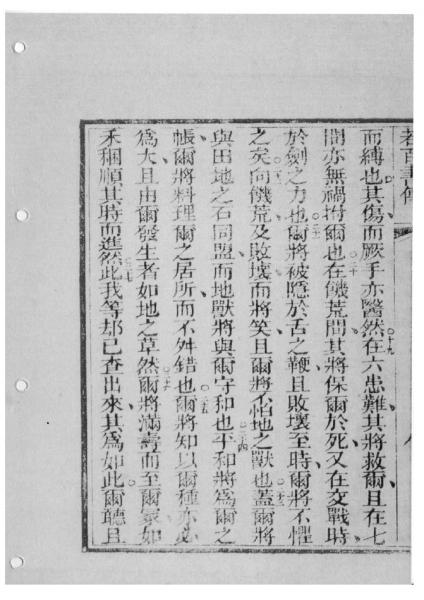 若百書傳
而縛也其傷而厥手亦醫然在六患難其將救爾且在七
間亦無禍拊爾也在饑荒間其將保爾於死又在交戰時
於劍之力也爾將被隱於舌之鞭且敗壞至時爾將不懼
之矣向饑荒及敗壞而將笑且爾將不怕地之獸也蓋爾將
與田地之石同盟而地獸將與爾守和也平和將為爾之
帳爾將料理爾之居所而不舛錯也爾將知以爾種亦必
為大且由爾發生者如地之草然爾將滿壽而至爾塚如
禾稛順其時而進然此我等却已查出來其為如此爾聽且